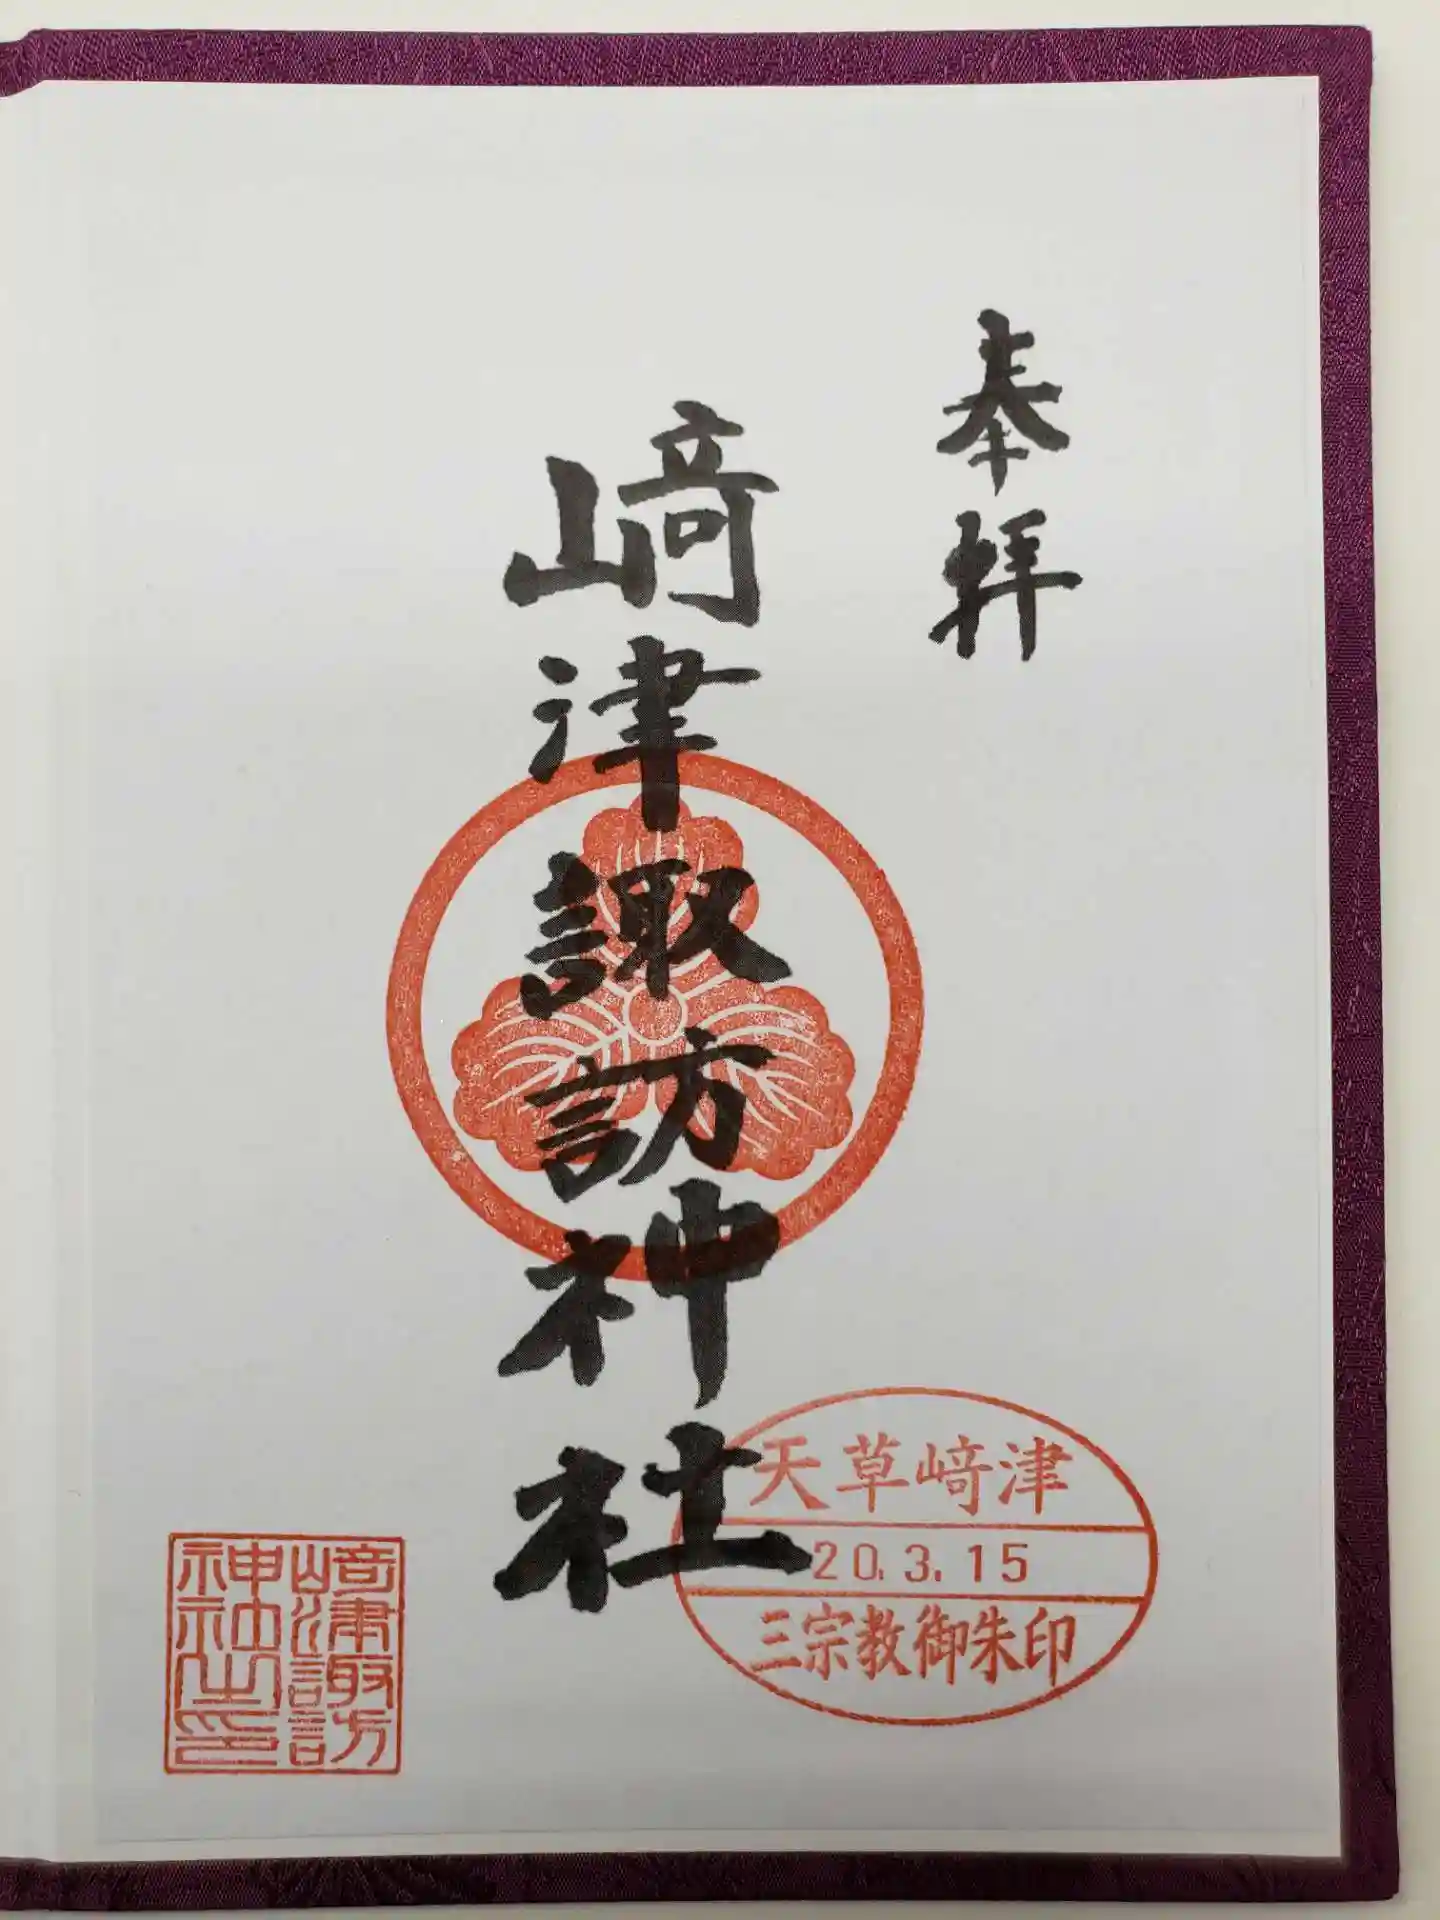 奉拝
﨑津諏訪神社
天草﨑津
20.3.15
三宗教御朱印
﨑津諏訪
神社印